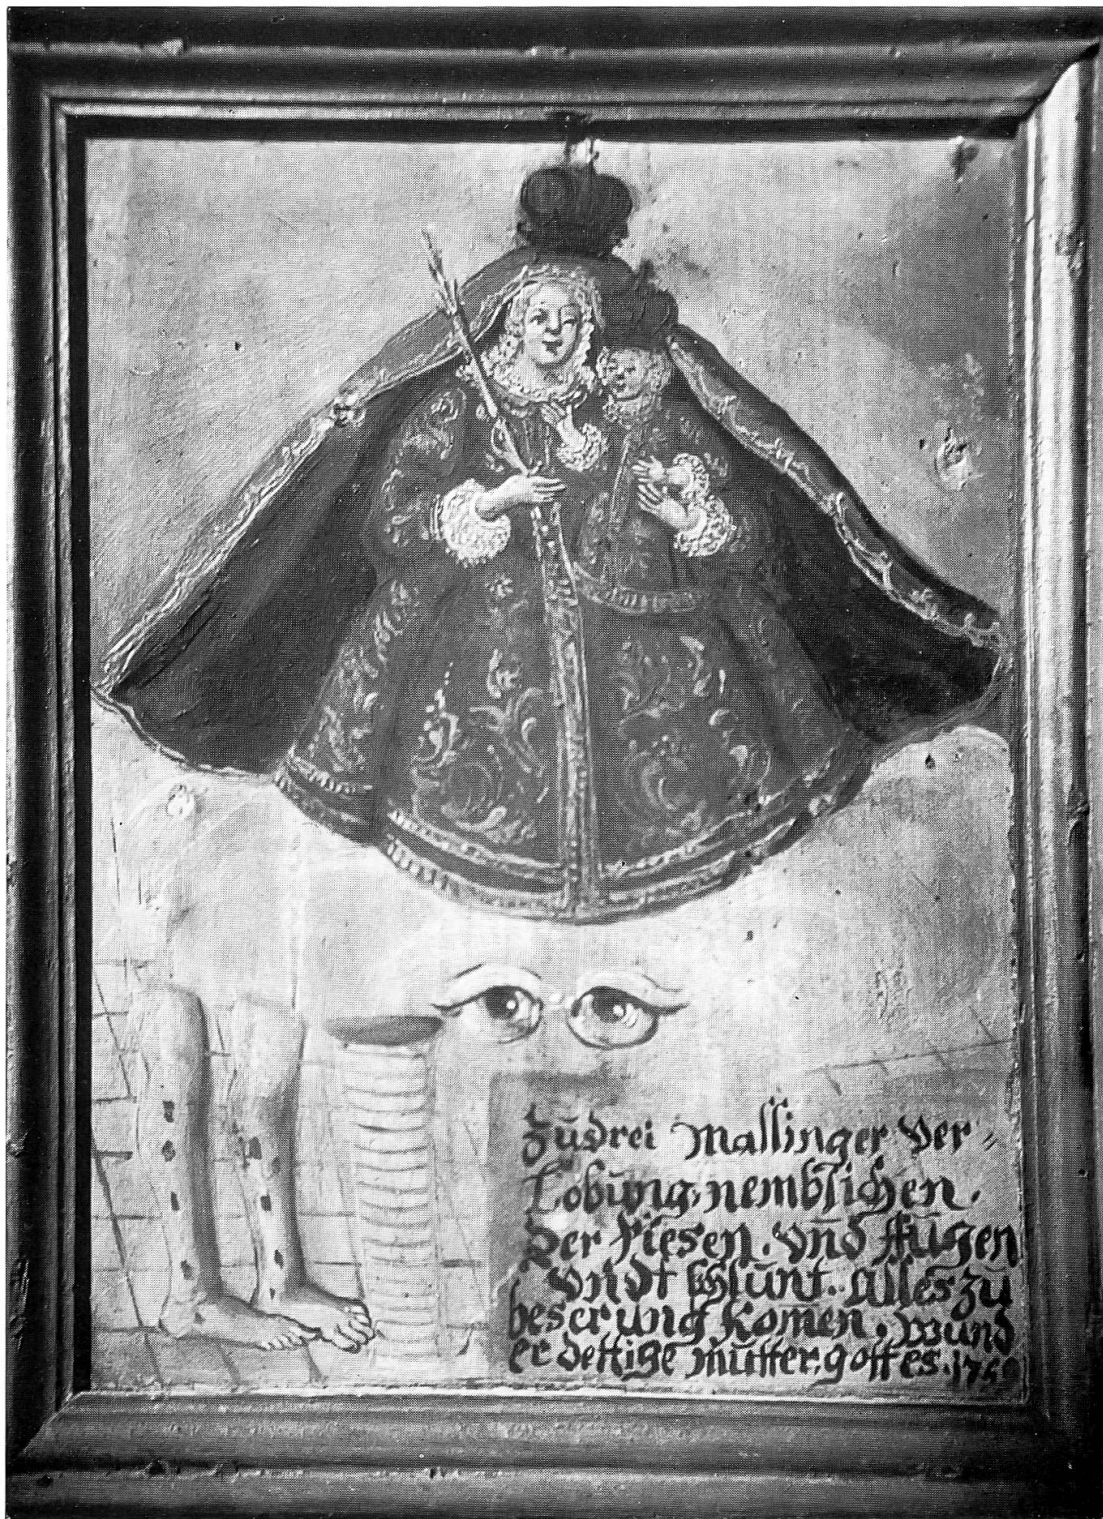 Zu drei Mallinger Ver-
Lobung, nemblichen.
Der fiesen. und Augen
undt schlunt. alles zu
beserung komen, wund
er dettige mutter gottes.